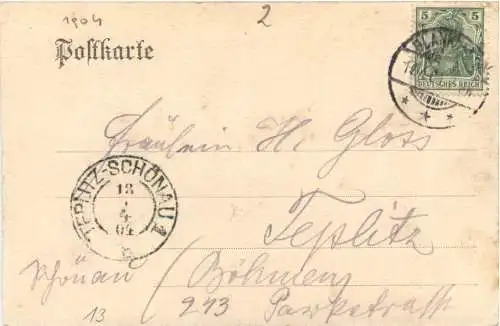 1904
2
Postkarte
5
DEUTSCHES REICH
Fräulein H. Gloss
TEPLITZ-SCHÖNAU 1
13
4
04
Teplitz
Schönau
Böhmen
13
243 Parkstrasse